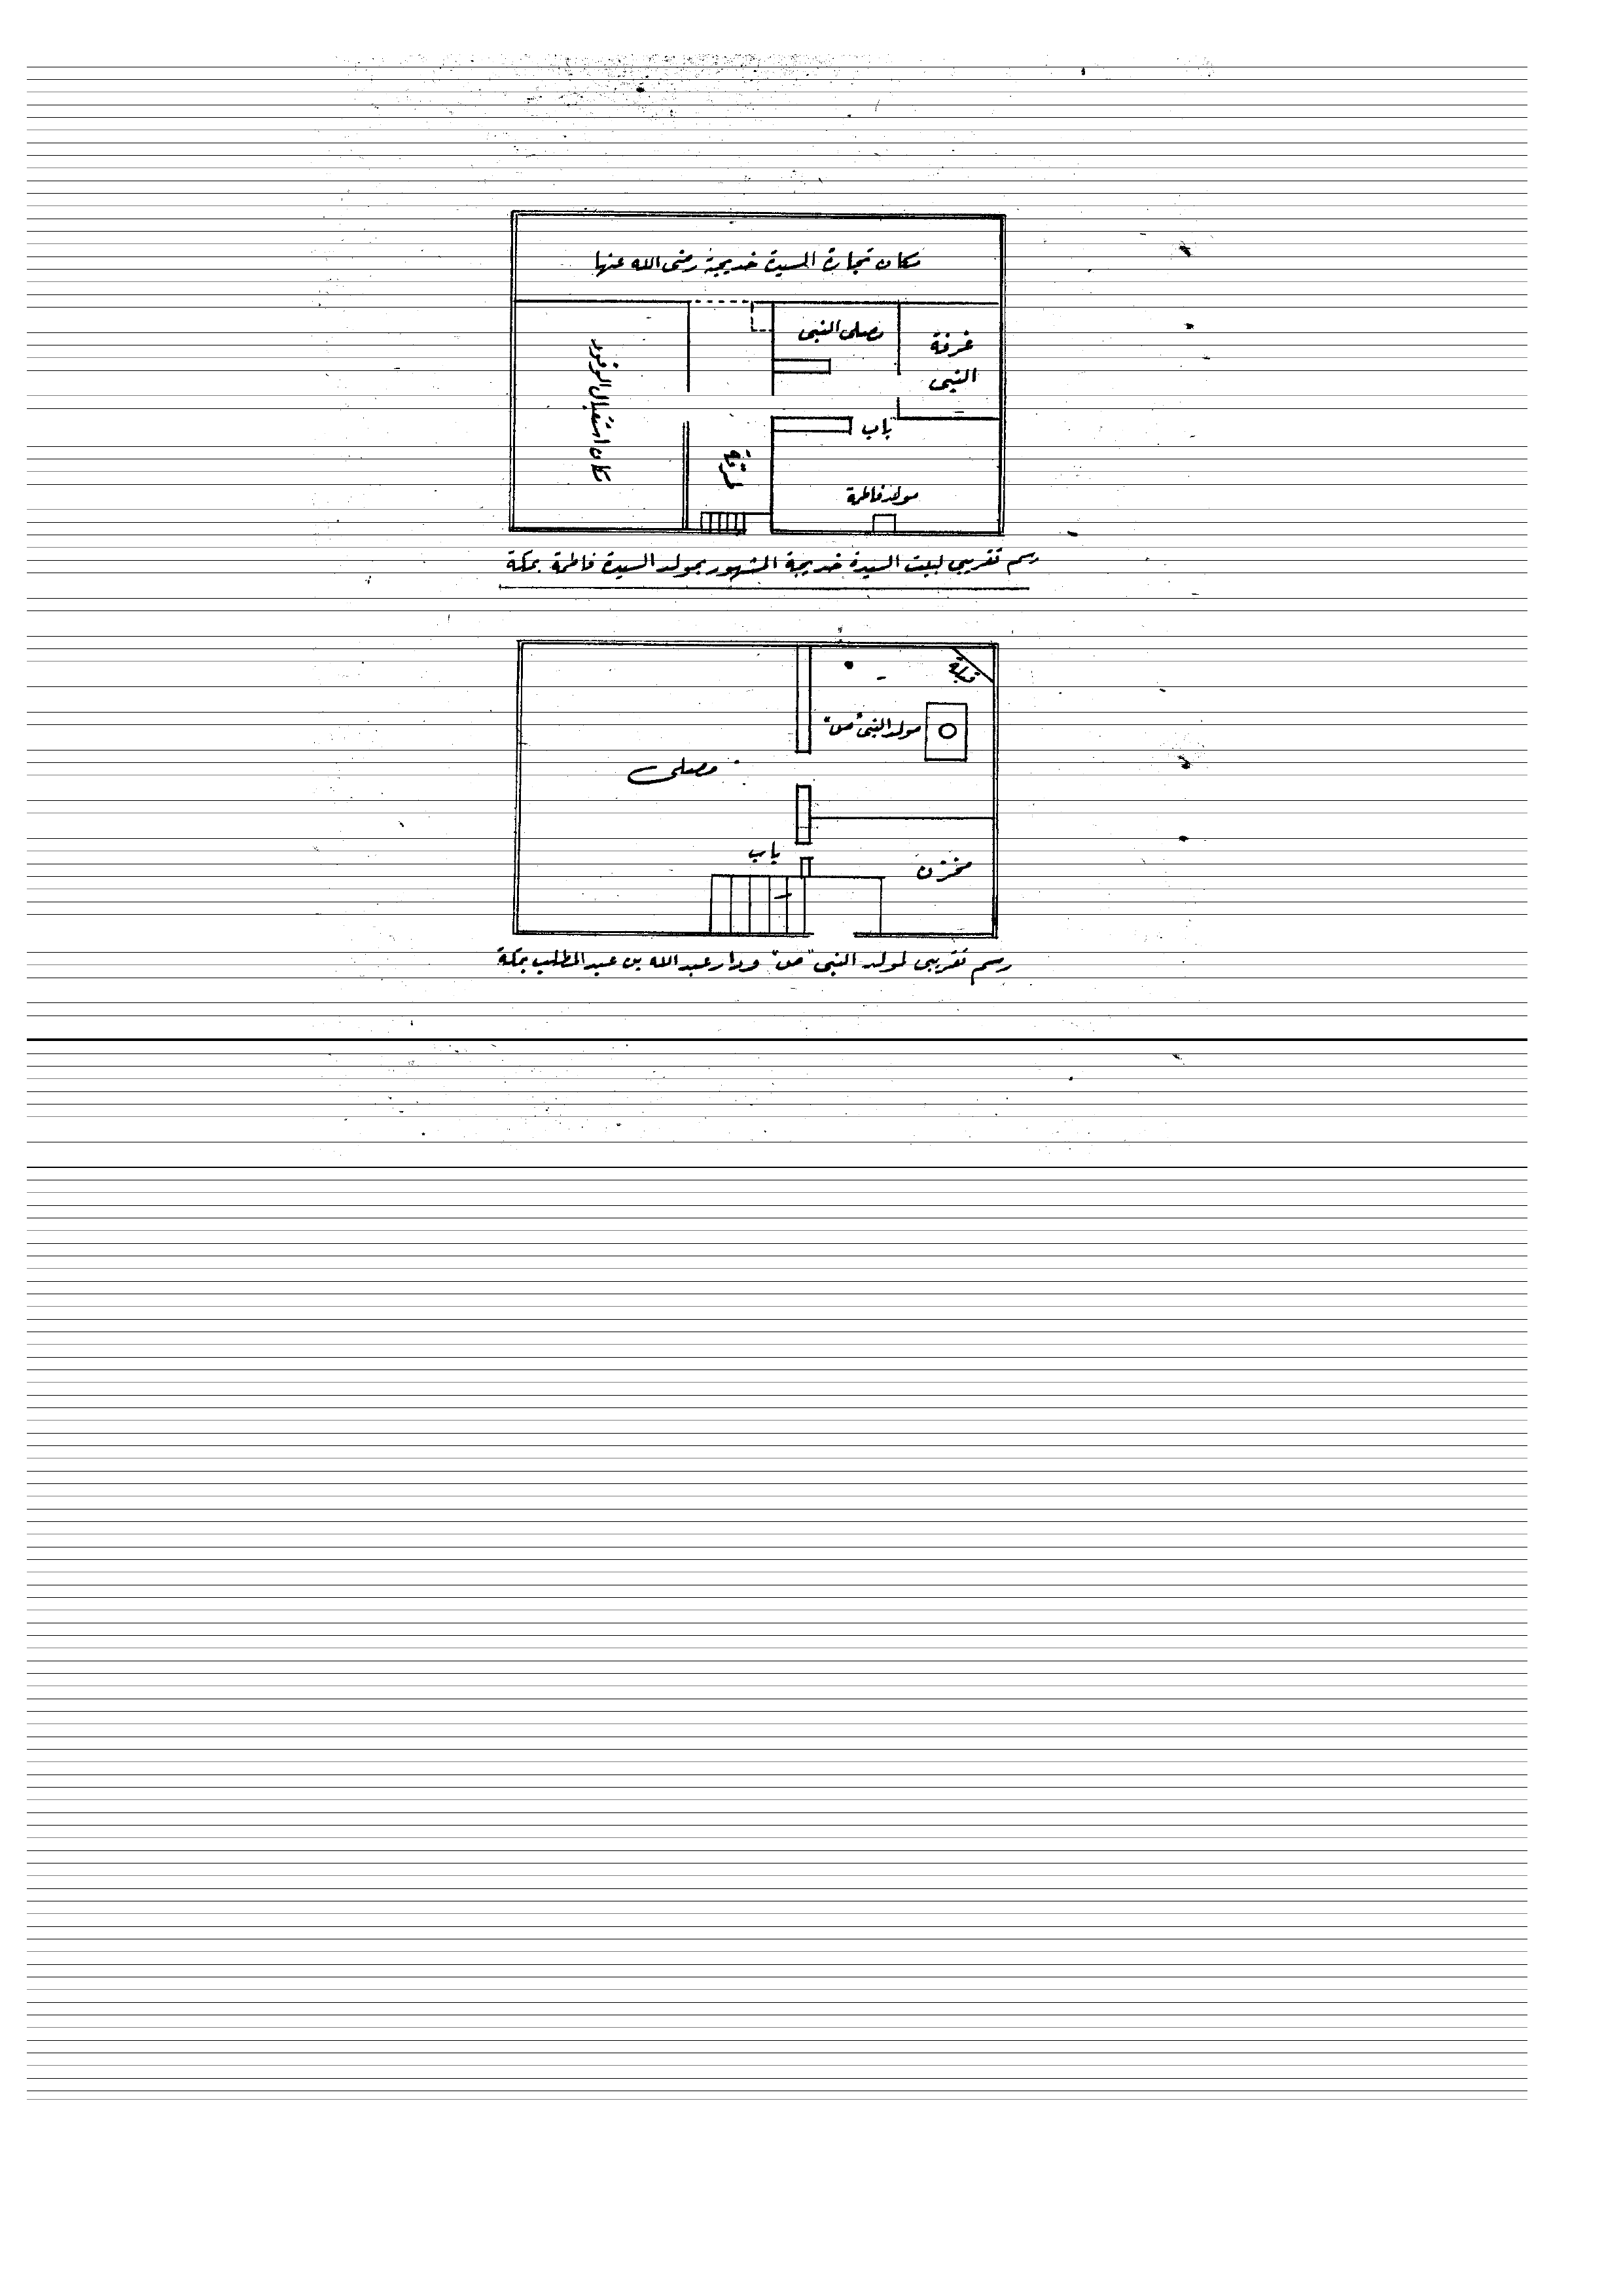 مكان تجارة السيدة خديجة رضى الله عنها
غرفة
النبى
مصلى النبى
مكان استقبال الوفود
باب
مولد فاطمة
رسم تقريبى لبيت السيدة خديجة المشهور بمولد السيدة فاطمة بمكة
مولد النبى "ص"
مصلى
باب
مخزن
رسم تقريبى لمولد النبى "ص" ودار عبد الله بن عبد المطلب بمكة